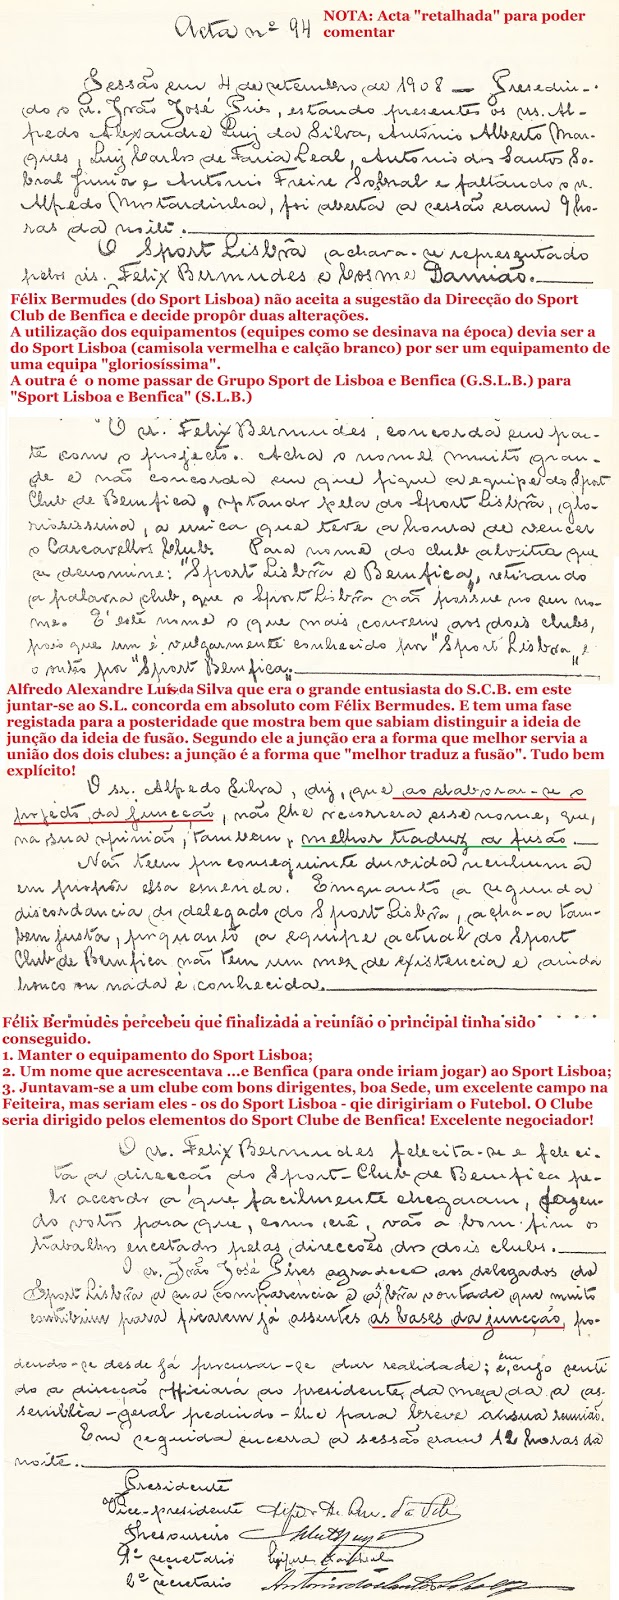 Acta nº 94
NOTA: Acta "retalhada" para poder
comentar
Sessão em 4 de setembro de 1908 — Presedin-
do o sr. João José Pires, estando presentes os srs. Al-
fredo Alexandre Luiz da Silva, António Alberto Mar-
ques, Luiz Carlos de Faria Leal, Antonio dos Santos So-
bral Junior e António Freire Sobral e faltando o sr.
Alfredo Mostardinha, foi aberta a cessão eram 9 ho-
ras da noite.
O Sport Lisbôa achava-se representado
pelos srs. Felix Bermudes e Cosme Damião.
Félix Bermudes (do Sport Lisboa) não aceita a sugestão da Direcção do Sport
Club de Benfica e decide propôr duas alterações.
A utilização dos equipamentos (equipes como se desinava na época) devia ser a
do Sport Lisboa (camisola vermelha e calção branco) por ser um equipamento de
uma equipa "gloriosíssima".
A outra é o nome passar de Grupo Sport de Lisboa e Benfica (G.S.L.B.) para
"Sport Lisboa e Benfica" (S.L.B.)
O sr. Felix Bermudes, concorda em par-
te com o projecto. Acha o nome muito gran-
de e não concorda em que fique a equipe do Sport
Club de Bemfica, optando pela do Sport Lisbôa, glo-
riosissima, a unica que teve a honra de vencer
o Carcavellos Club. Para nome do club alvitra que
se denomine: "Sport Lisbôa e Bemfica", retirando
a palavra club, que o Sport Lisbôa não possue no seu no-
me. E' este nome o que mais convem aos dois clubs,
pois que um é vulgarmente conhecido por "Sport Lisboa" e
o outro por "Sport Bemfica".
Alfredo Alexandre Luís da Silva que era o grande entusiasta do S.C.B. em este
juntar-se ao S.L. concorda em absoluto com Félix Bermudes. E tem uma fase
registada para a posteridade que mostra bem que sabiam distinguir a ideia de
junção da ideia de fusão. Segundo ele a junção era a forma que melhor servia a
união dos dois clubes: a junção é a forma que "melhor traduz a fusão". Tudo bem
explícito!
O sr. Alfredo Silva, diz, que ao elaborar-se o
projecto da juncção, não lhe recorrera esse nome, que,
na sua opinião, tambem, melhor traduz a fusão.
Não teem por conseguinte duvida nenhuma
em propôr essa emenda. Emquanto a segunda
discordancia do delegado do Sport Lisbôa, acha-a tam-
bem justa, porquanto a equipe actual do Sport
Club de Bemfica não tem um mez de existencia e ainda
pouco ou nada é conhecida.
Félix Bermudes percebeu que finalizada a reunião o principal tinha sido
conseguido.
1. Manter o equipamento do Sport Lisboa;
2. Um nome que acrescentava ...e Benfica (para onde iriam jogar) ao Sport Lisboa;
3. Juntavam-se a um clube com bons dirigentes, boa Sede, um excelente campo na
Feiteira, mas seriam eles - os do Sport Lisboa - qie dirigiriam o Futebol. O Clube
seria dirigido pelos elementos do Sport Clube de Benfica! Excelente negociador!
O sr. Felix Bermudes felicita-se e felici-
ta a direcção do Sport-Club de Bemfica pe-
lo accordo a que facilmente chegaram, fazen-
do votos para que, como crê, vão a bom fim os
trabalhos encetados pelas direcções dos dois clubs.
O sr. João José Pires agradece aos delegados do
Sport Lisbôa a sua comparencia e a bôa vontade que muito
contribuiu para ficarem já assentes as bases da juncção, po-
dendo-se desde já procurar-se dar realidade; em cujo senti-
do a direcção officiará ao presidente da meza da as-
sembleia-geral pedindo-lhe para breve a sua reunião.
Em seguida encerra a sessão eram 12 horas da
noite.
Presidente
Vice-presidente
Thesoureiro
1º secretario
2º secretario